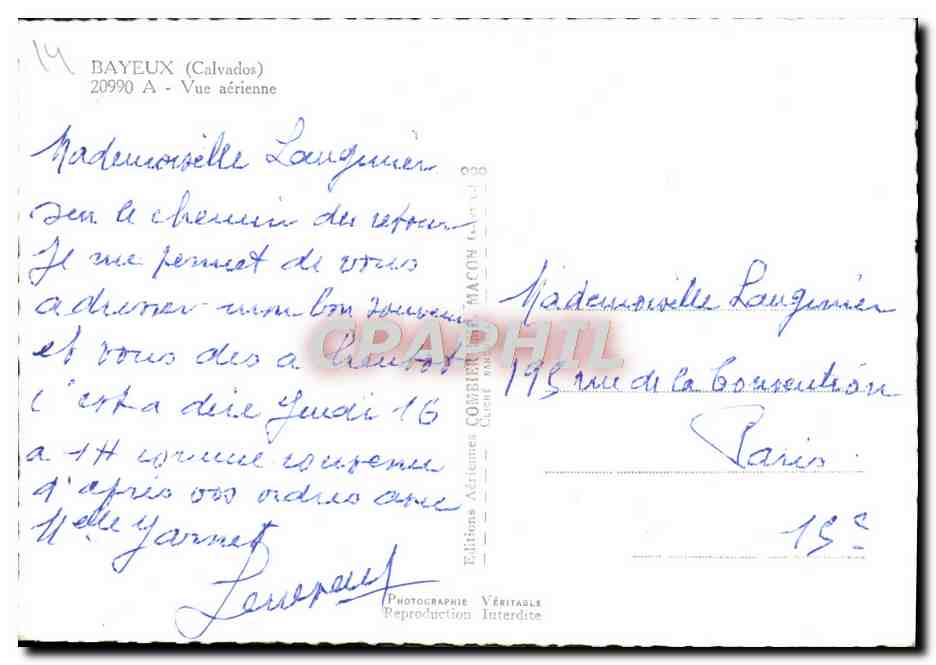 14
BAYEUX (Calvados)
20990 A - Vue aérienne
Mademoiselle Lauginier
sur le chemin du retour
Je me permet de vous
adresser mon bon souvenir
et vous dis a bientot
c'est a dire Jeudi 16
a 1H comme convenu
d'après vos ordres avec
Melle
Editions Aériennes COMBIER MACON
CLICHÉ
CPAPHIL
Mademoiselle Lauginier
195 rue de la Convention
Paris
15e
PHOTOGRAPHIE VÉRITABLE
Reproduction Interdite